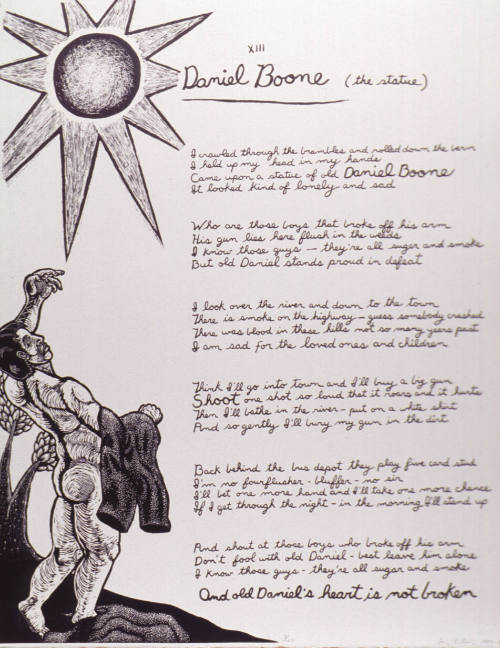 XIII
Daniel Boone (the statue)
I crawled through the brambles and rolled down the berm
I held up my head in my hands
Came upon a statue of old Daniel Boone
It looked kind of lonely and sad
Who are those boys that broke off his arm
His gun lies here flush in the weeds
I know those guys - they're all sugar and smoke
But old Daniel stands proud in defeat
I look over the river and down to the town
There is smoke on the highway - guess somebody crashed
There was blood in these hills not so many years past
I am sad for the loved ones and children
Think I'll go into town and I'll buy a big gun
Shoot one shot so loud that it roars and it hurts
Then I'll bathe in the river - put on a white shirt
And so gently I'll bury my gun in the dirt
Back behind the bus depot they play five card stud
I'm no fourflusher - bluffer - no sir
I'll bet one more hand and I'll take one more chance
If I get through the night - in the morning I'll stand up
And shout at those boys who broke off his arm
Don't fool with old Daniel - best leave him alone
I know those guys - they're all sugar and smoke
And old Daniel's heart is not broken